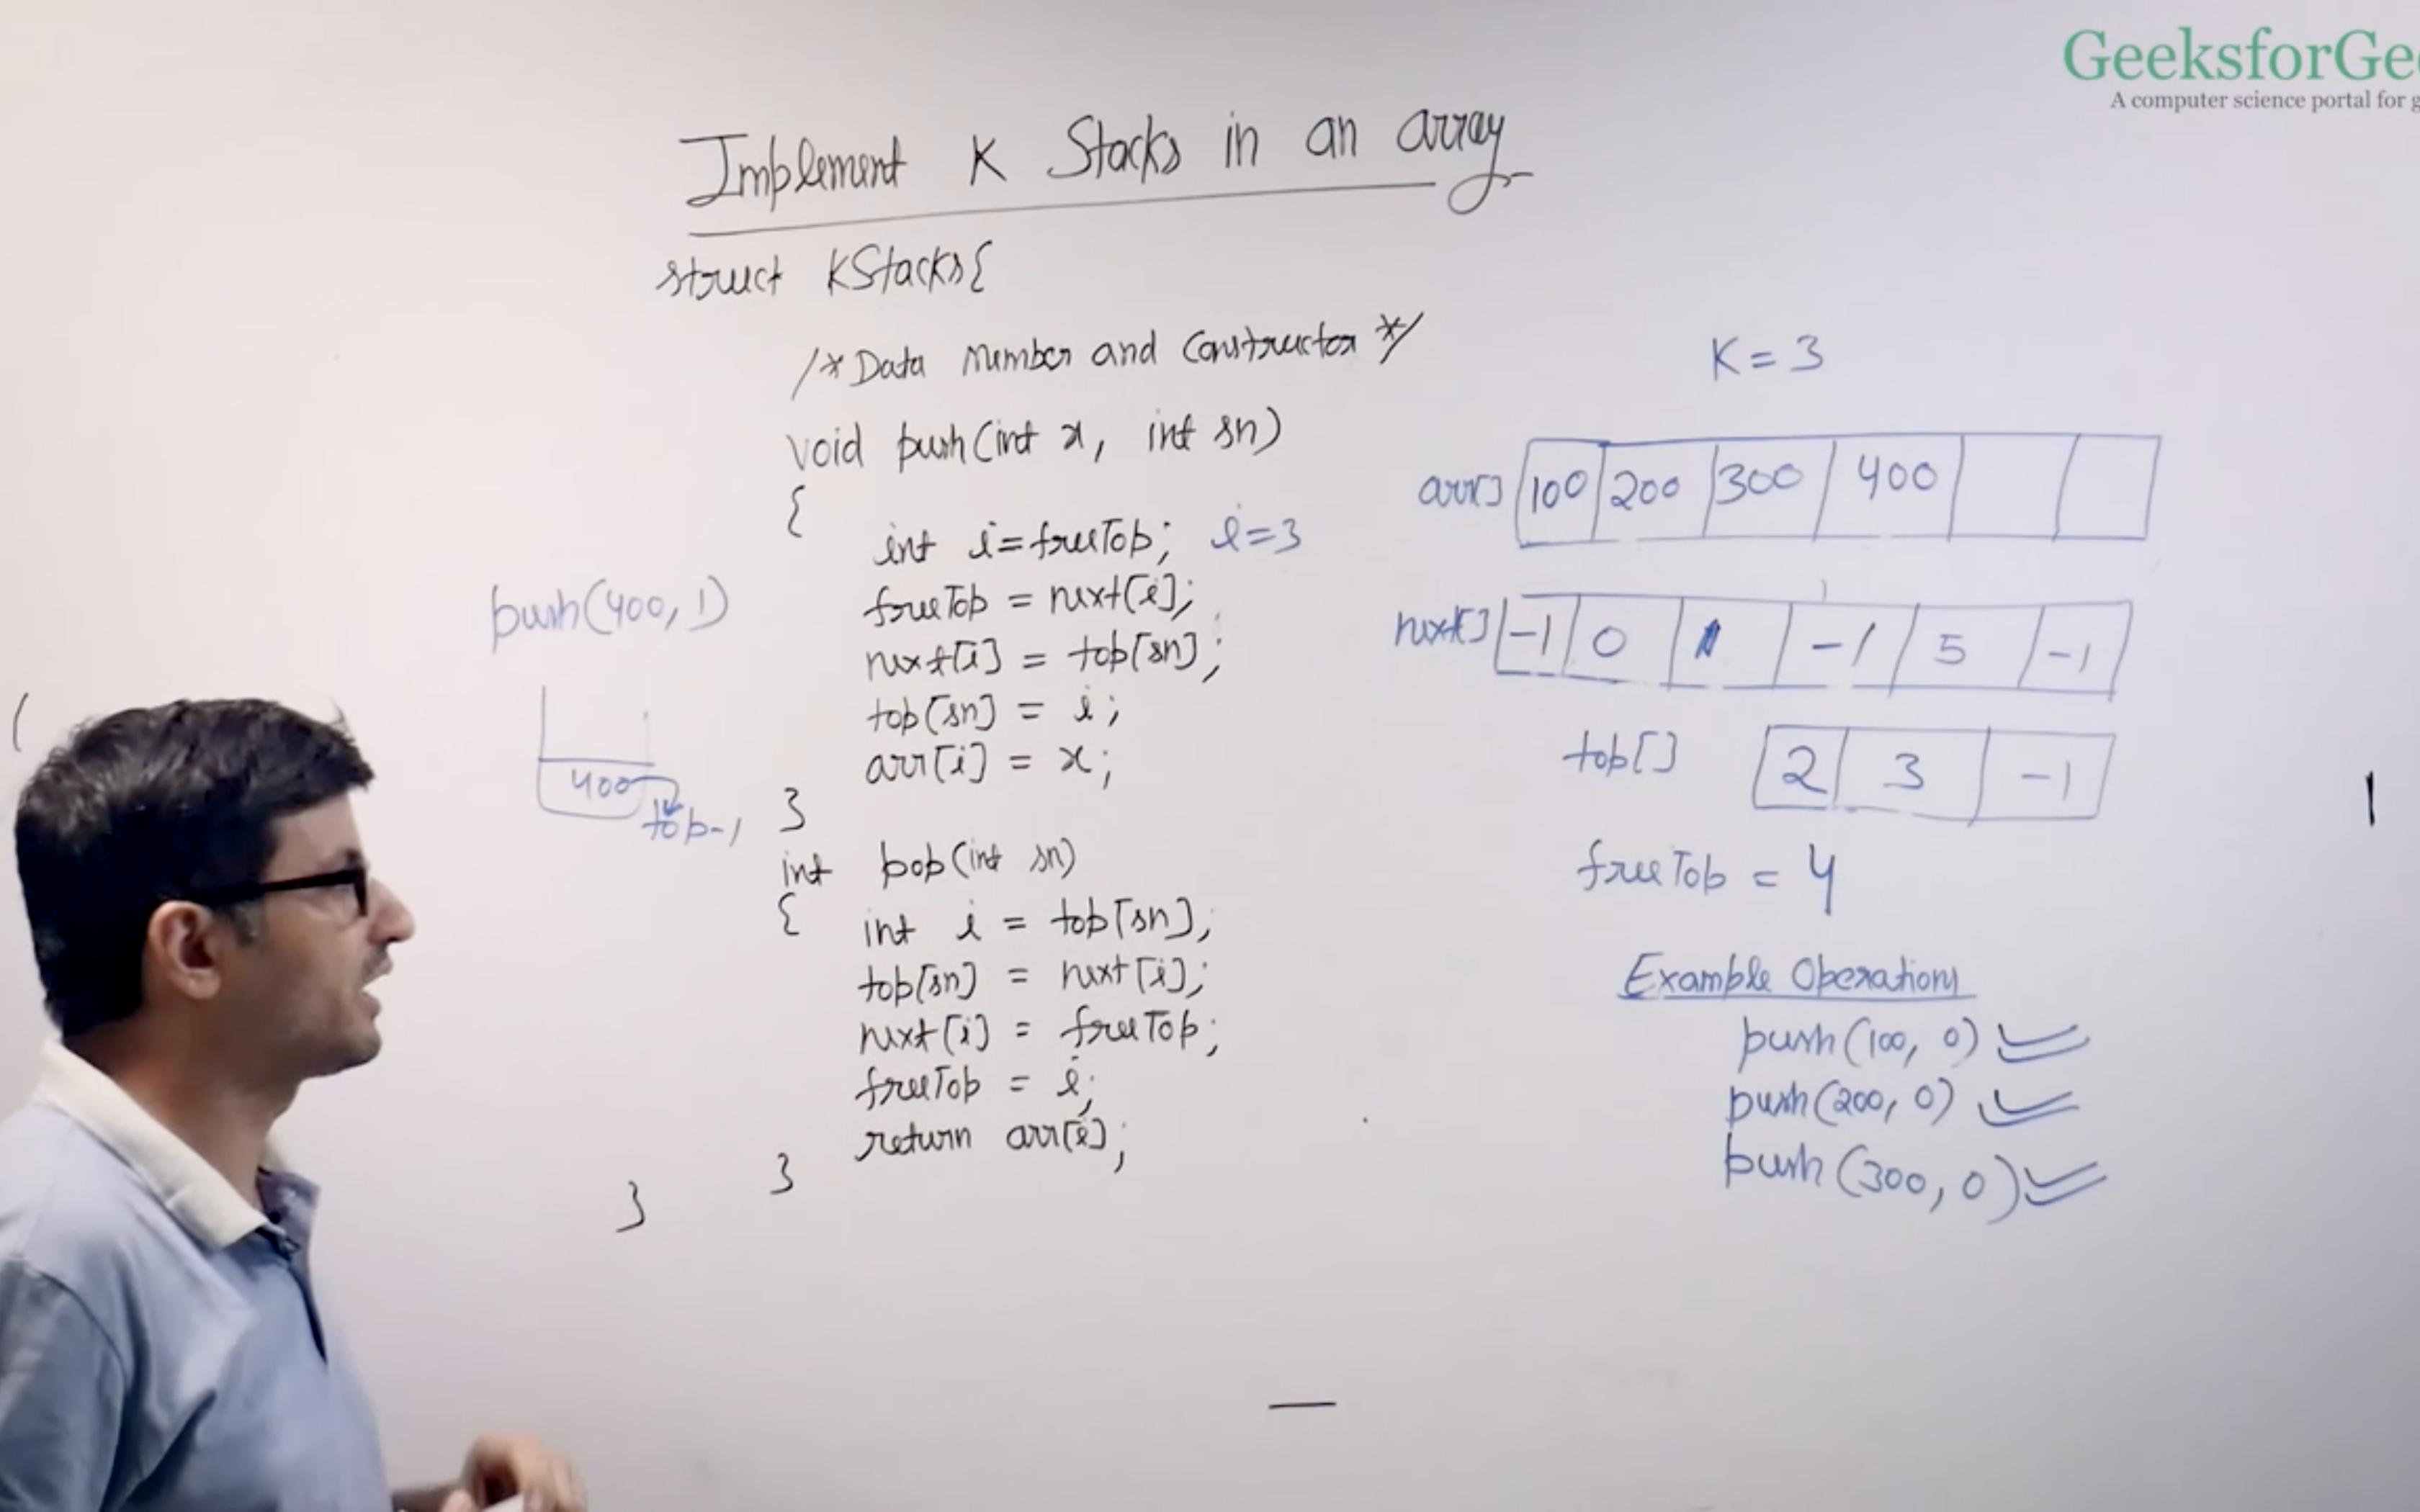 GeeksforGe
A computer science portal for g
Implement K Stacks in an array
struct KStacks{
/* Data Member and Constructor */
void push(int x, int sn)
{
int i=freeTop; i=3
freeTop = next[i];
next[i] = top[sn];
top[sn] = i;
arr[i] = x;
}
int pop(int sn)
{
int i = top[sn];
top[sn] = next[i];
next[i] = freeTop;
freeTop = i;
return arr[i];
}
}
push(400, 1)
400
top-1
K = 3
arr[] 100 200 300 400
next[] -1 0 1 -1 5 -1
top[] 2 3 -1
freeTop = 4
Example Operations
push(100, 0)
push(200, 0)
push(300, 0)